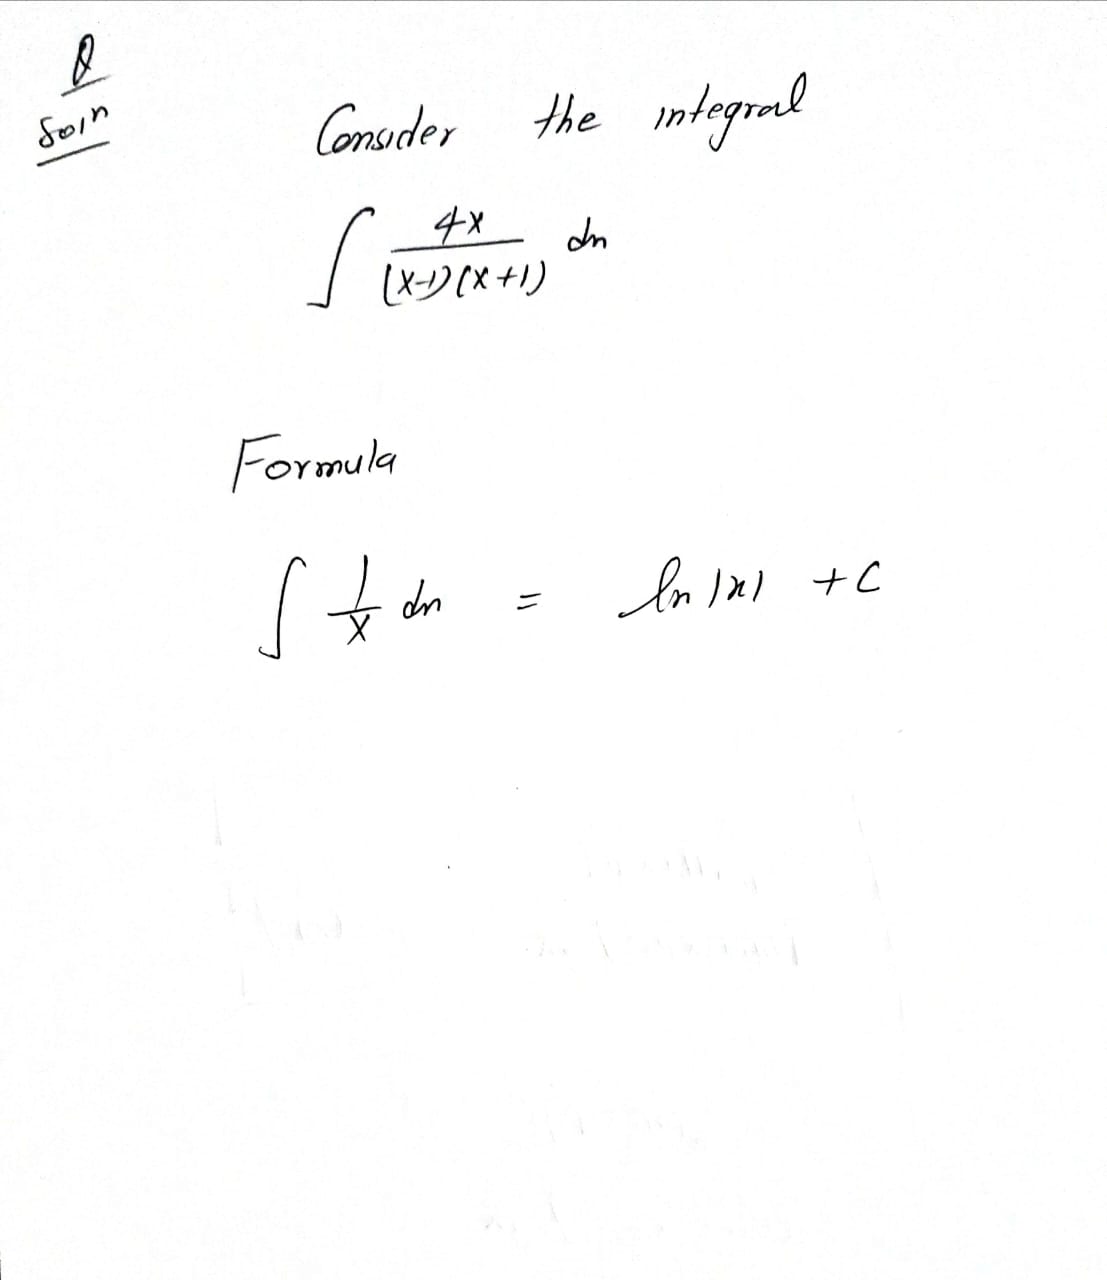 Q
Soln
Consider the integral
∫ 4x / (x-1)(x+1) dx
Formula
∫ 1/x dx = ln |x| + C